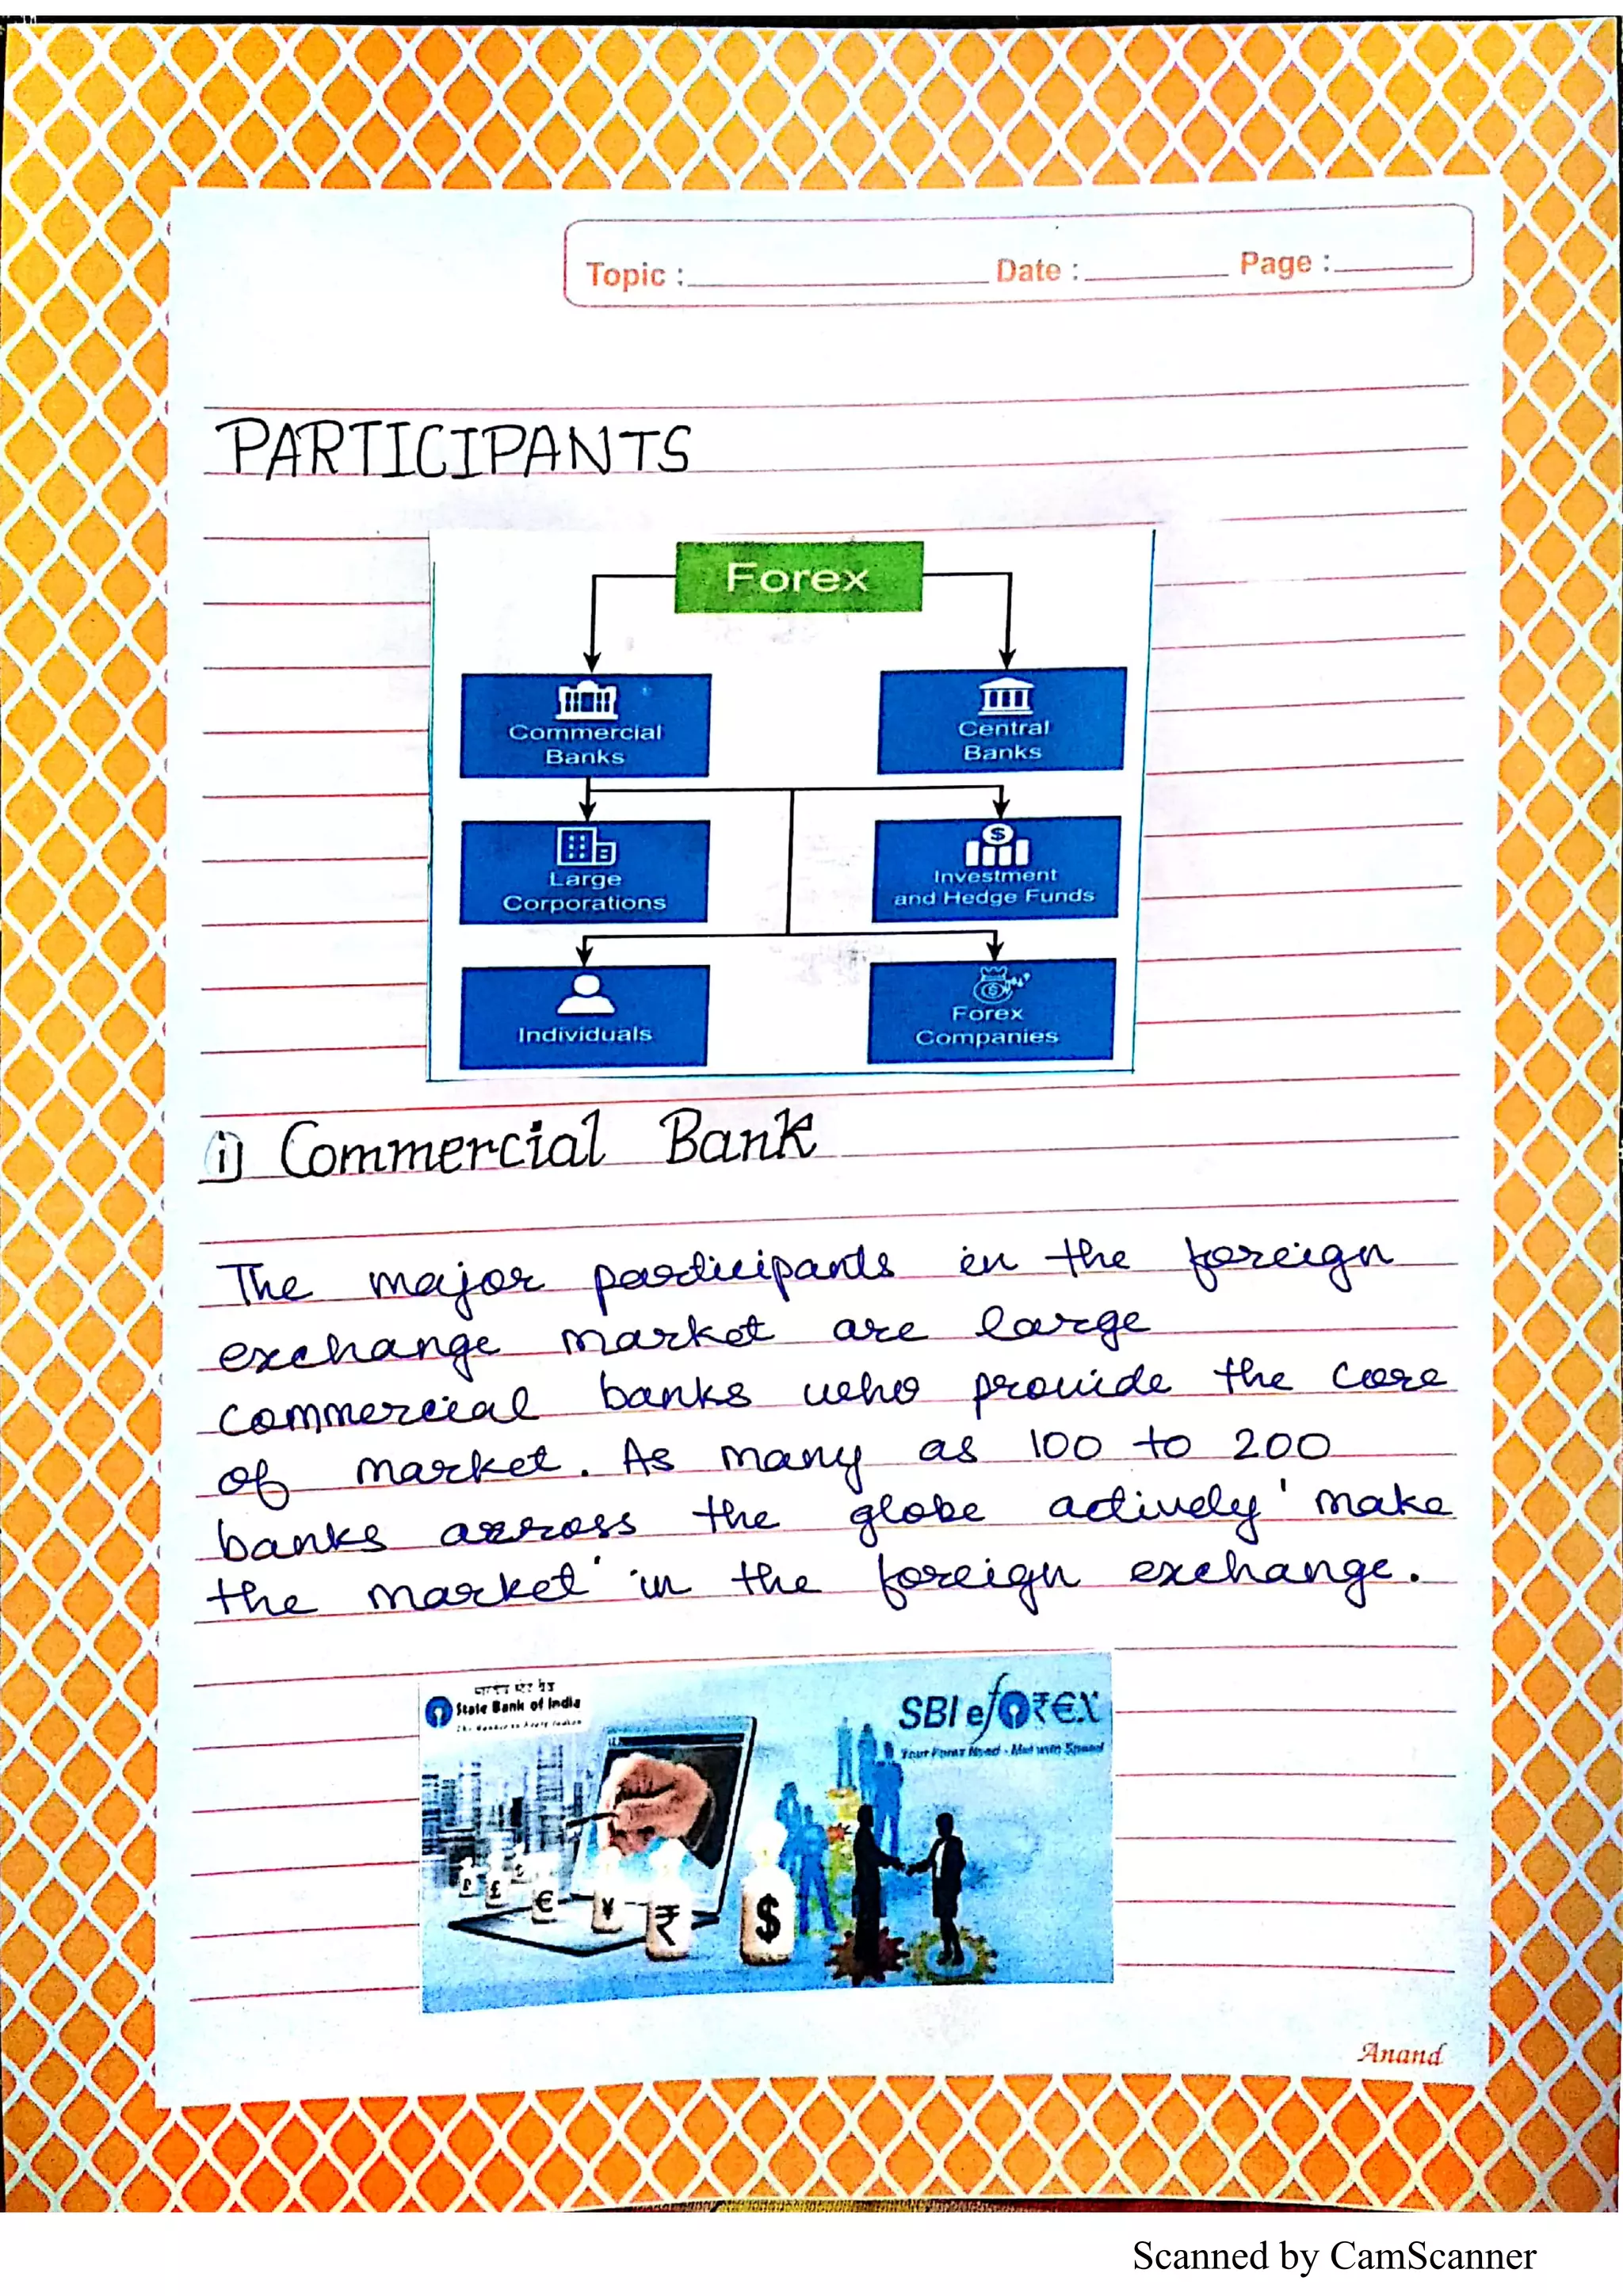 Topic : Date : Page :
PARTICIPANTS
Forex
Commercial
Banks
Central
Banks
Large
Corporations
Investment
and Hedge Funds
Individuals
Forex
Companies
i) Commercial Bank
The major participants in the foreign
exchange market are large
commercial banks who provide the core
of market. As many as 100 to 200
banks across the globe actively 'make
the market' in the foreign exchange.
State Bank of India
SBI eFOR€X
Your Forex Need - Met with Speed
£
€
¥
₹
$
Anand
Scanned by CamScanner